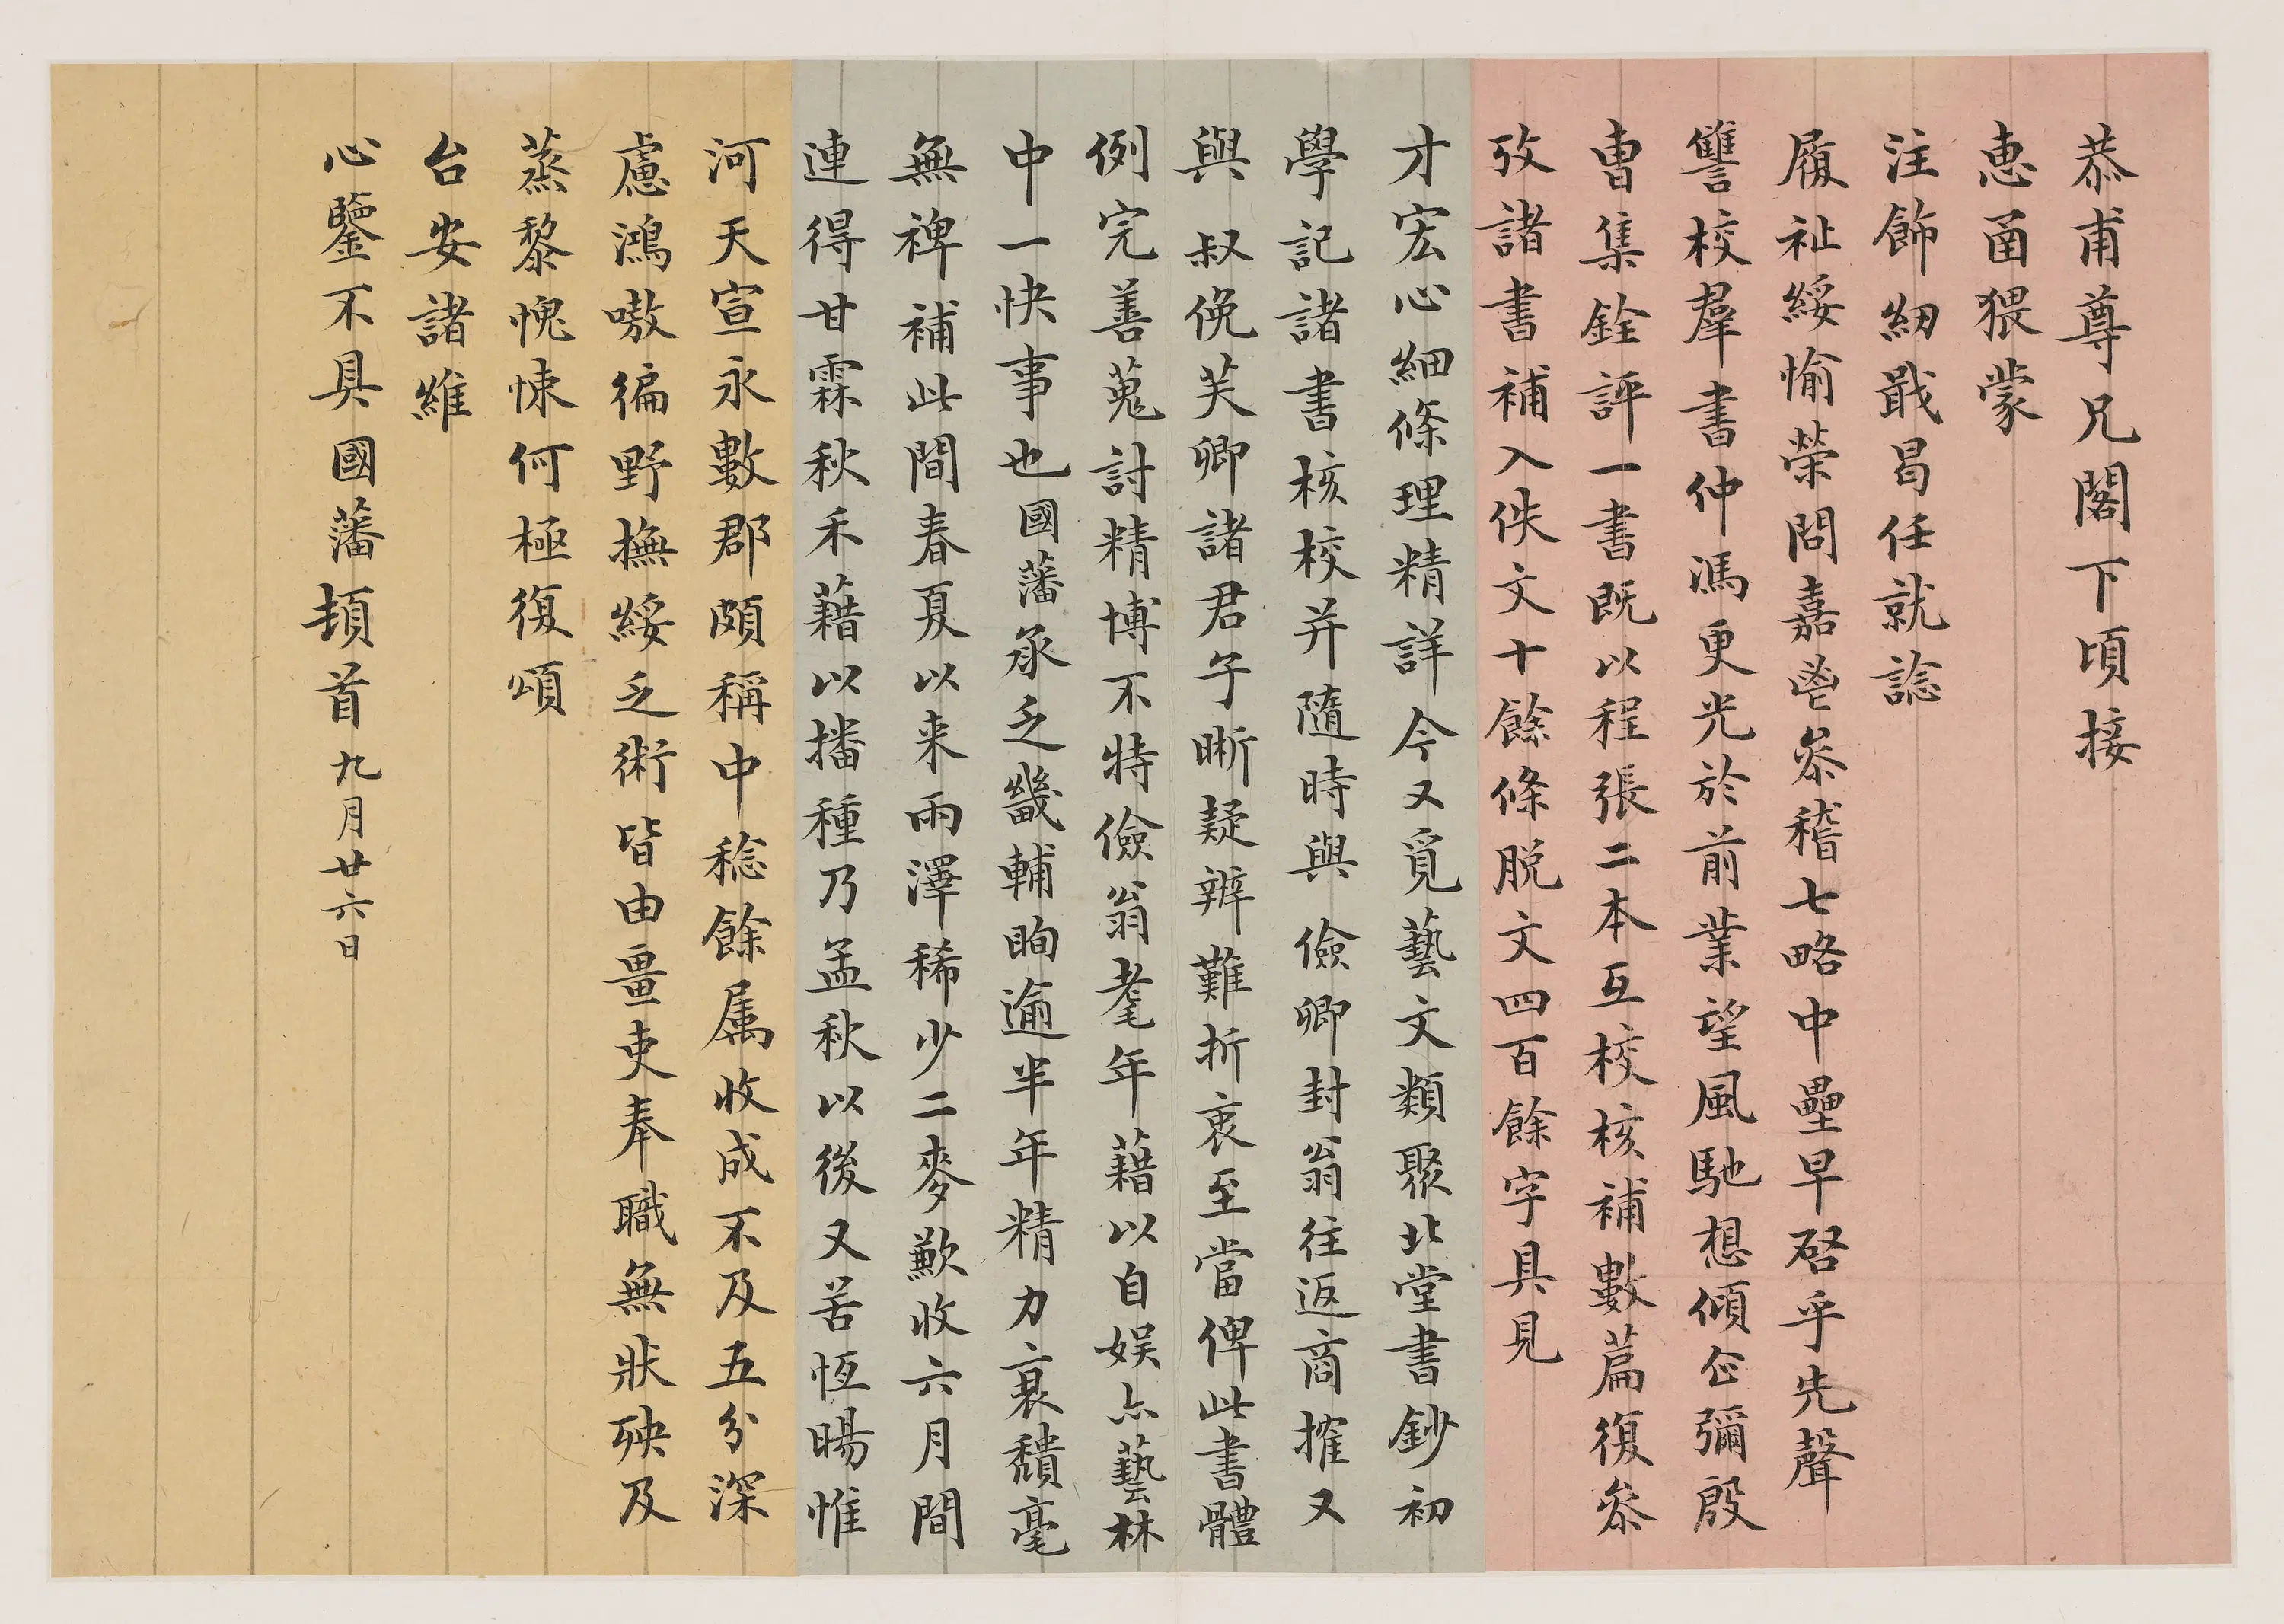 恭甫尊兄閣下頃接
惠函猥蒙
注飾紉戢曷任就諗
履祉綏愉榮問嘉鬯叅稽七略中壘早啓乎先聲
讐校羣書仲馮更光於前業望風馳想傾企彌殷
曹集銓評一書既以程張二本互校核補數篇復叅
攷諸書補入佚文十餘條脱文四百餘字具見
才宏心細條理精詳今又覓藝文類聚北堂書鈔初
學記諸書核校并隨時與儉卿封翁往返商搉又
與叔俛芙卿諸君子晰疑辨難折衷至當俾此書體
例完善蒐討精博不特儉翁耄年藉以自娱亦藝林
中一快事也國藩承乏畿輔眴逾半年精力衰穨毫
無裨補此間春夏以来雨澤稀少二麥歉收六月間
連得甘霖秋禾藉以播種乃孟秋以後又苦恆暘惟
河天宣永數郡頗稱中稔餘属收成不及五分深
慮鴻嗷徧野撫綏乏術皆由畺吏奉職無狀殃及
蒸黎愧悚何極復頌
台安諸維
心鑒不具國藩頓首九月廿六日